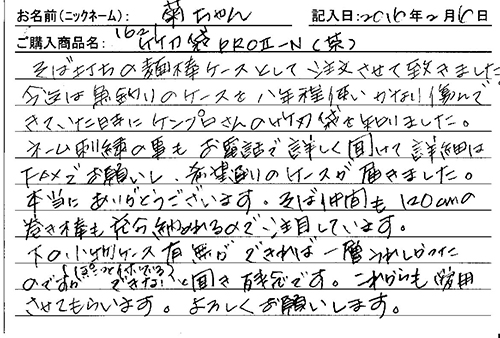 お名前(ニックネーム): 菊ちゃん 記入日: 2016年2月6日
ご購入商品名: 1621 竹刀袋PROⅡ-N(茶)
そば打ちの麺棒ケースとして注文させて頂きました。
今迄は魚釣りのケースを八年程使いかなり傷んで
きていた時にケンプロさんの竹刀袋を知りました。
ネーム刺繍の事もお電話で詳しく聞けて詳細は
FAXでお願いし、希望通りのケースが届きました。
本当にありがとうございます。そば仲間も120cmの
巻き棒も充分納められるので注目しています。
下の小物ケース有無ができれば一層うれしかった
のですができないと聞き残念です。これからも愛用
させてもらいます。よろしくお願いします。